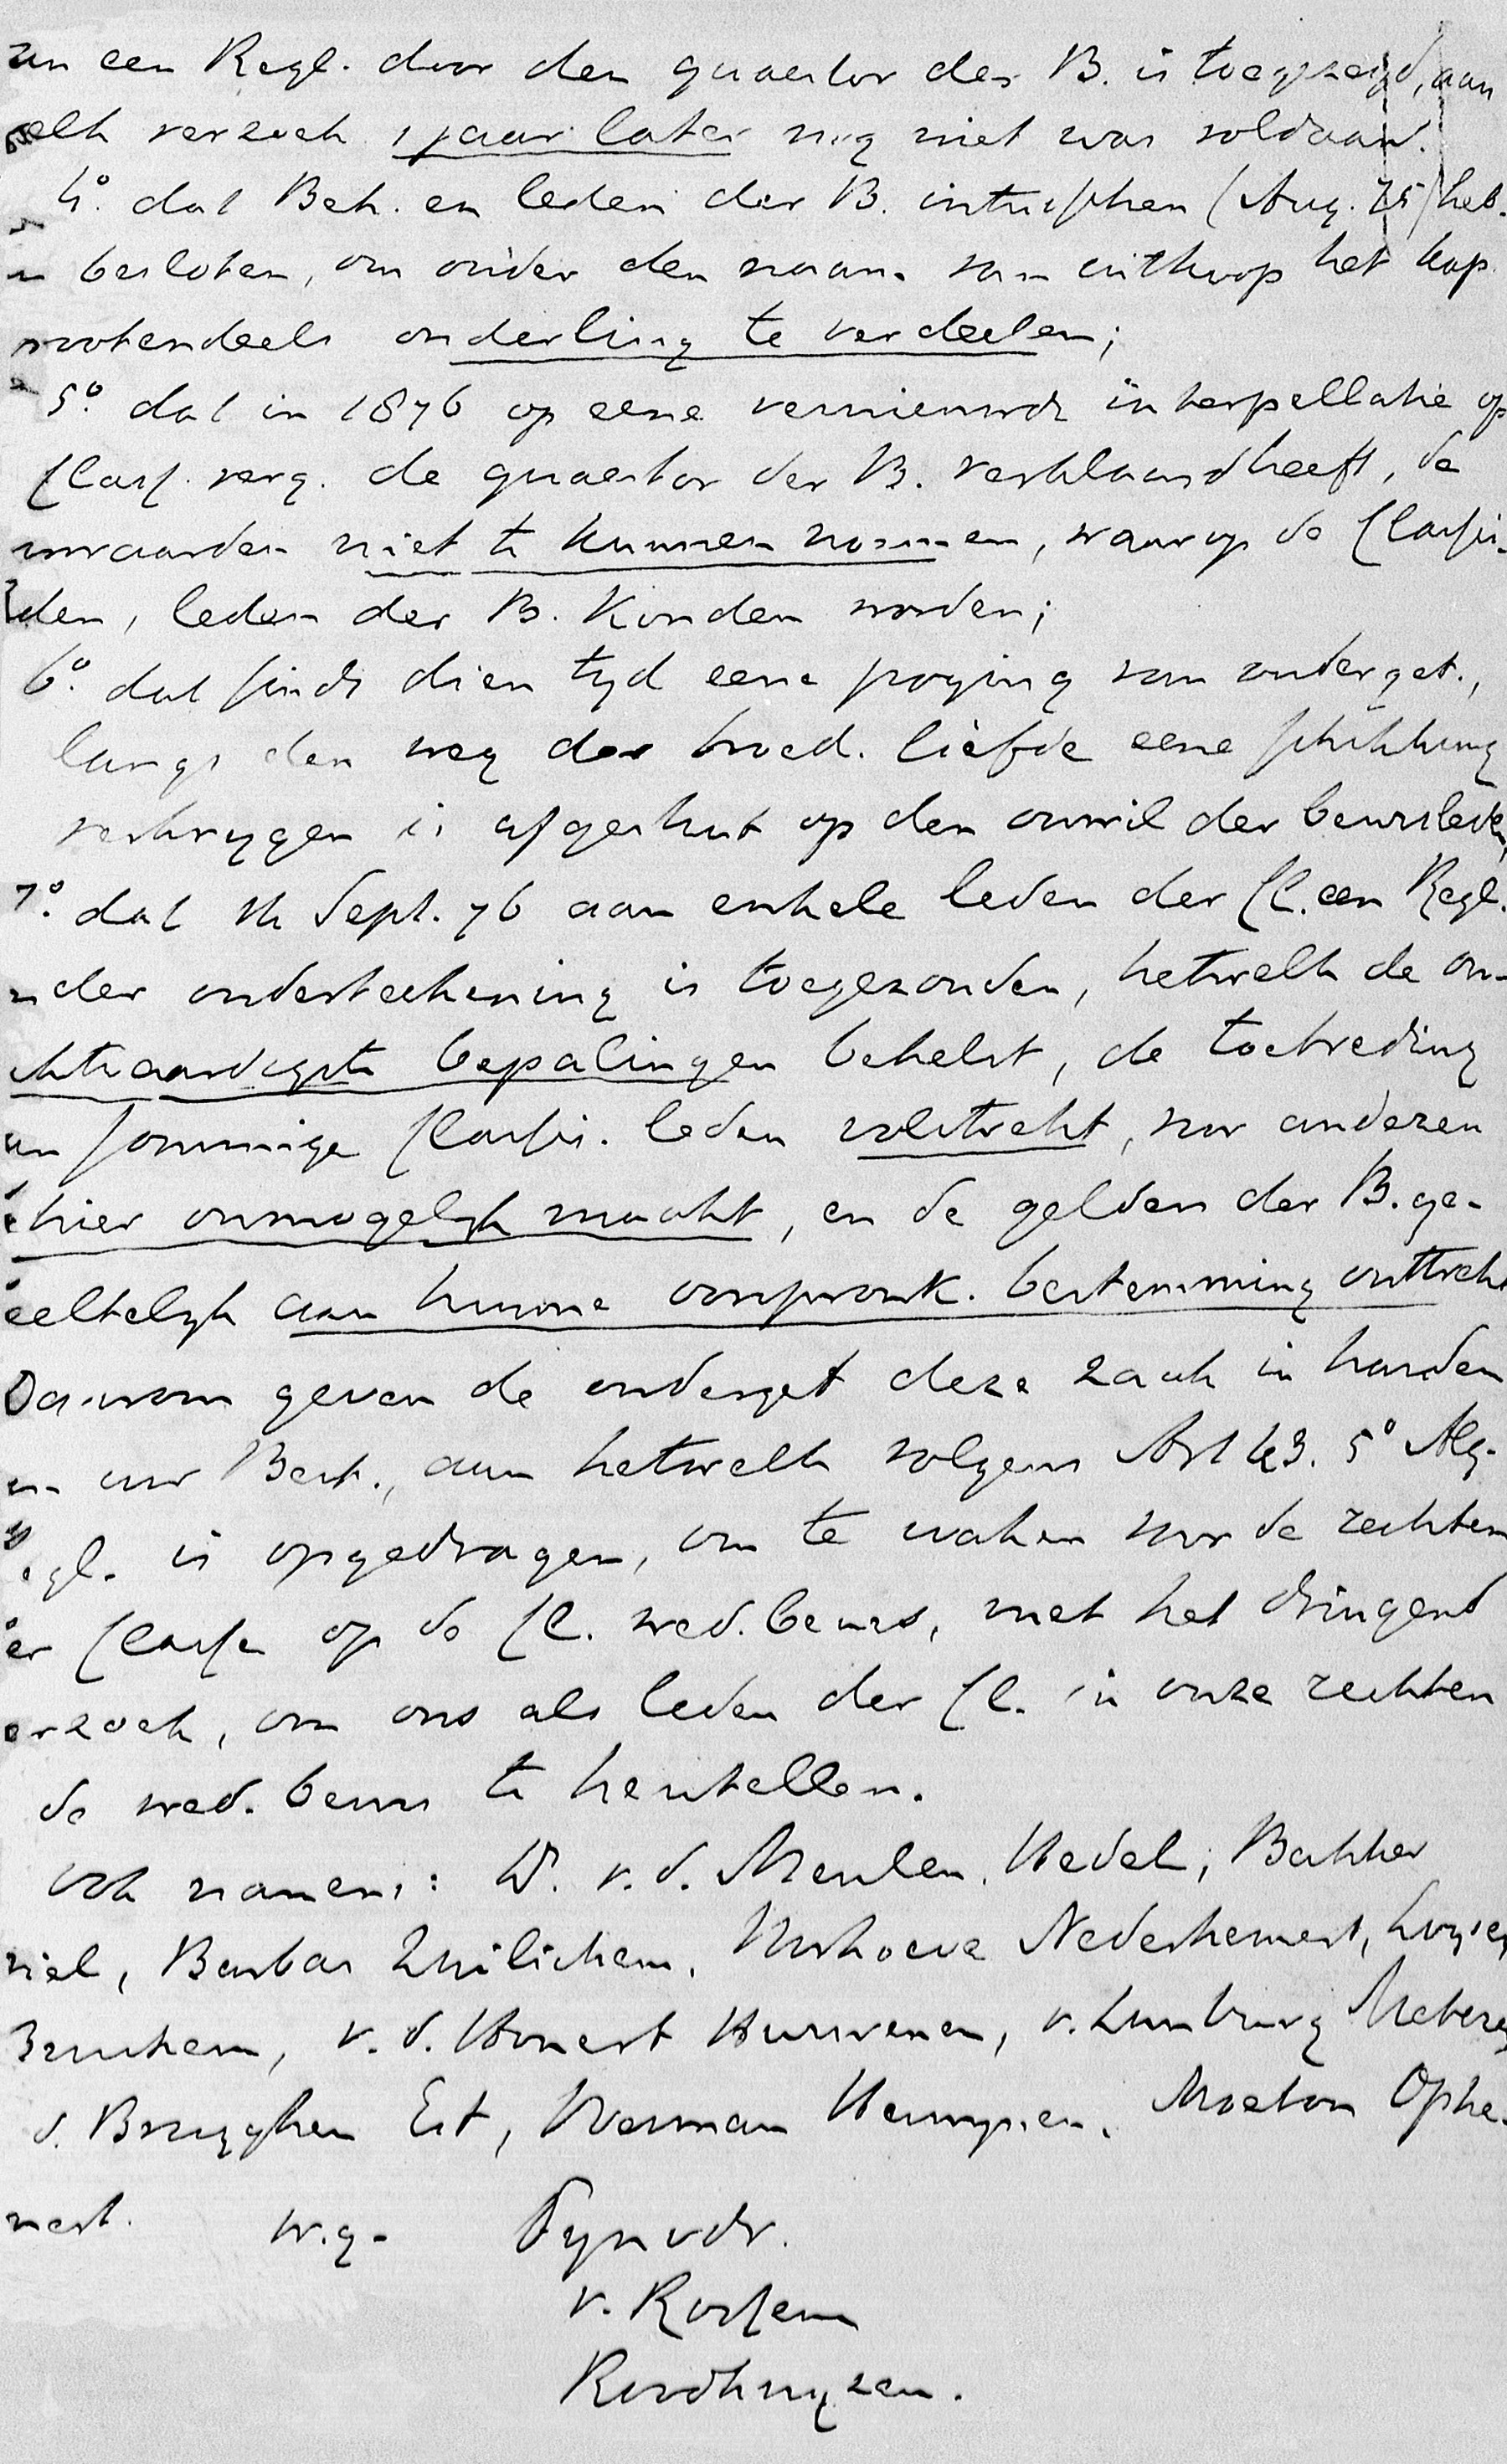 van een Regl. door den quaestor der B. is toegezegd, aan
welk verzoek 1 jaar later nog niet was voldaan.
4o. dat Beh. en leden der B. intusschen (Aug. 75) heb-
n besloten, om onder den naam van uitkoop het kap.
grootendeels onderling te verdeelen;
5o. dat in 1876 op eene vernieuwde interpellatie op
Class. verg. de quaestor der B. verklaard heeft, de
voorwaarden niet te kunnen noemen, waarop de Classis-
leden, leden der B. konden worden;
6o. dat sinds dien tyd eene poging van onderget.,
langs den weg der broed. liefde eene schikking
verkrygen is afgestuit op den onwil der beursleden,
7o. dat in Sept. 76 aan enkele leden der Cl. een Regl.
nder onderteekening is toegezonden, hetwelk de on-
echtvaardigste bepalingen behelst, de toetreding
van sommige Classis. leden volstrekt, voor anderen
schier onmogelyk maakt, en de gelden der B. ge-
deeltelyk aan hunne oorspronk. bestemming onttrekt
Daarom geven de onderget deze zaak in handen
van uw Best., aan hetwelk volgens Art 43. 5o Alg.
Regl. is opgedragen, om te waken voor de rechten
der Classe op de Cl. wed. beurs, met het dringend
verzoek, om ons als leden der Cl. in onze rechten
de wed. beurs te herstellen.
Ook namens: W. v. d. Meulen, Hedel, Bakker
riel, Barbas Zuilichem, Verhoeve Nederhemert,
Bruchem, v. d. Honert Hurwenen, v. Limburg Meteren
d. Brugghen Est, Weerman Herwynen, Moeton Ophe-
mert. w.g. Synodr.
v. Rossem
Roodhuyzen.